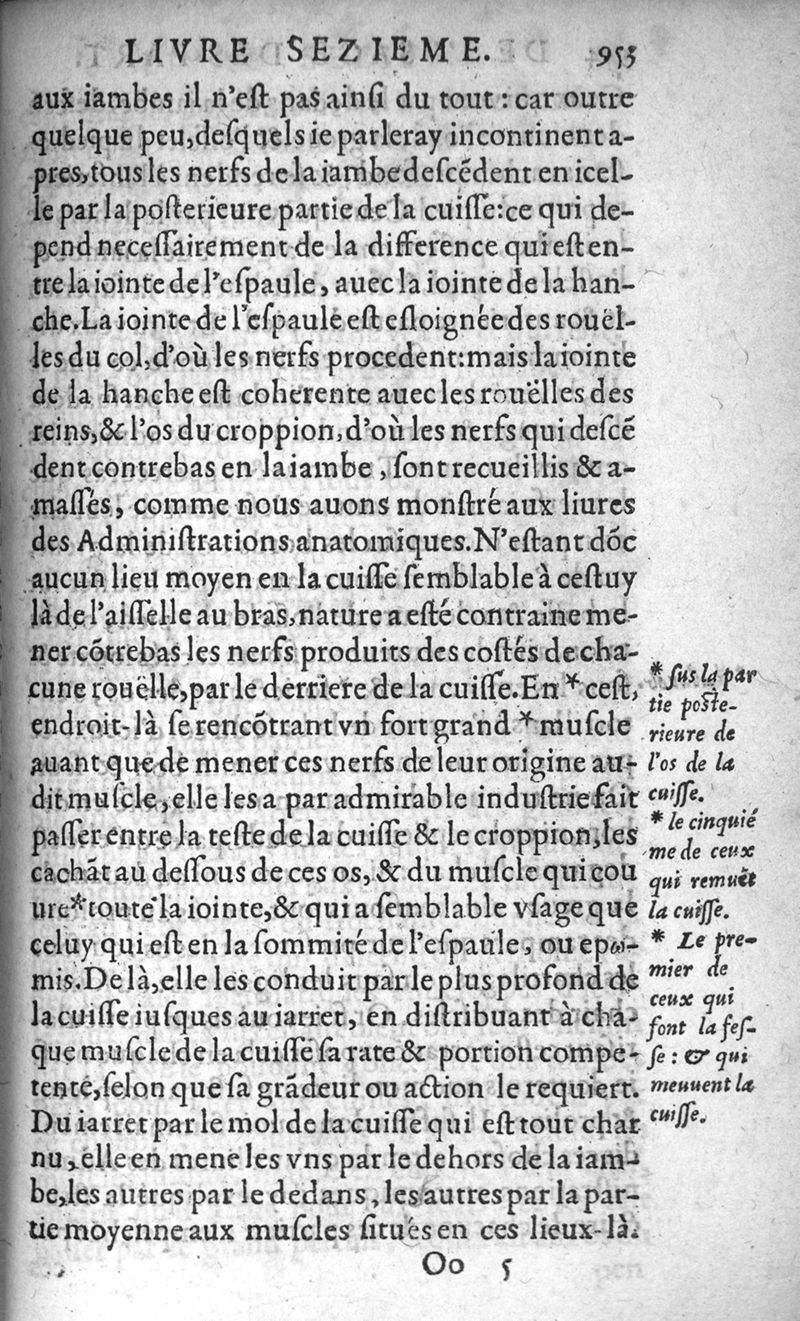 LIVRE SEZIEME. 955
aux iambes il n'eſt pas ainſi du tout : car outre
quelque peu, deſquels ie parleray incontinent a-
pres, tous les nerfs de la iambe deſcédent en icel-
le par la poſterieure partie de la cuiſſe: ce qui de-
pend neceſſairement de la difference qui eſt en-
tre la iointe de l'eſpaule, auec la iointe de la han-
che. La iointe de l'eſpaule eſt eſloignée des rouël-
les du col, d'où les nerfs procedent: mais la iointe
de la hanche eſt coherente auec les rouëlles des
reins, & l'os du croppion, d'où les nerfs qui deſcé
dent contrebas en la iambe, ſont recueillis & a-
maſſés, comme nous auons monſtré aux liures
des Adminiſtrations anatomiques. N'eſtant dõc
aucun lieu moyen en la cuiſſe ſemblable à ceſtuy
là de l'aiſſelle au bras, nature a eſté contraine me-
ner cõtrebas les nerfs produits des coſtés de cha-
cune rouëlle, par le derriere de la cuiſſe. En * ceſt,
endroit-là ſe rencõtrant vn fort grand * muſcle
auant que de mener ces nerfs de leur origine au-
dit muſcle, elle les a par admirable induſtrie fait
paſſer entre la teſte de la cuiſſe & le croppion, les
cachãt au deſſous de ces os, & du muſcle qui cou
ure * toute la iointe, & qui a ſemblable vſage que
celuy qui eſt en la ſommité de l'eſpaule, ou epω-
mis. De là, elle les conduit par le plus profond de
la cuiſſe iuſques au iarret, en diſtribuant à cha-
que muſcle de la cuiſſe ſa rate & portion compe-
tente, ſelon que ſa grãdeur ou action le requiert.
Du iarret par le mol de la cuiſſe qui eſt tout char
nu, elle en mene les vns par le dehors de la iam-
be, les autres par le dedans, les autres par la par-
tie moyenne aux muſcles ſitués en ces lieux-là.
Oo 5
* ſus la par
tie poſte-
rieure de
l'os de la
cuiſſe.
* le cinquié
me de ceux
qui remuẽt
la cuiſſe.
* Le pre-
mier de
ceux qui
font la feſ-
ſe : & qui
meuuent la
cuiſſe.